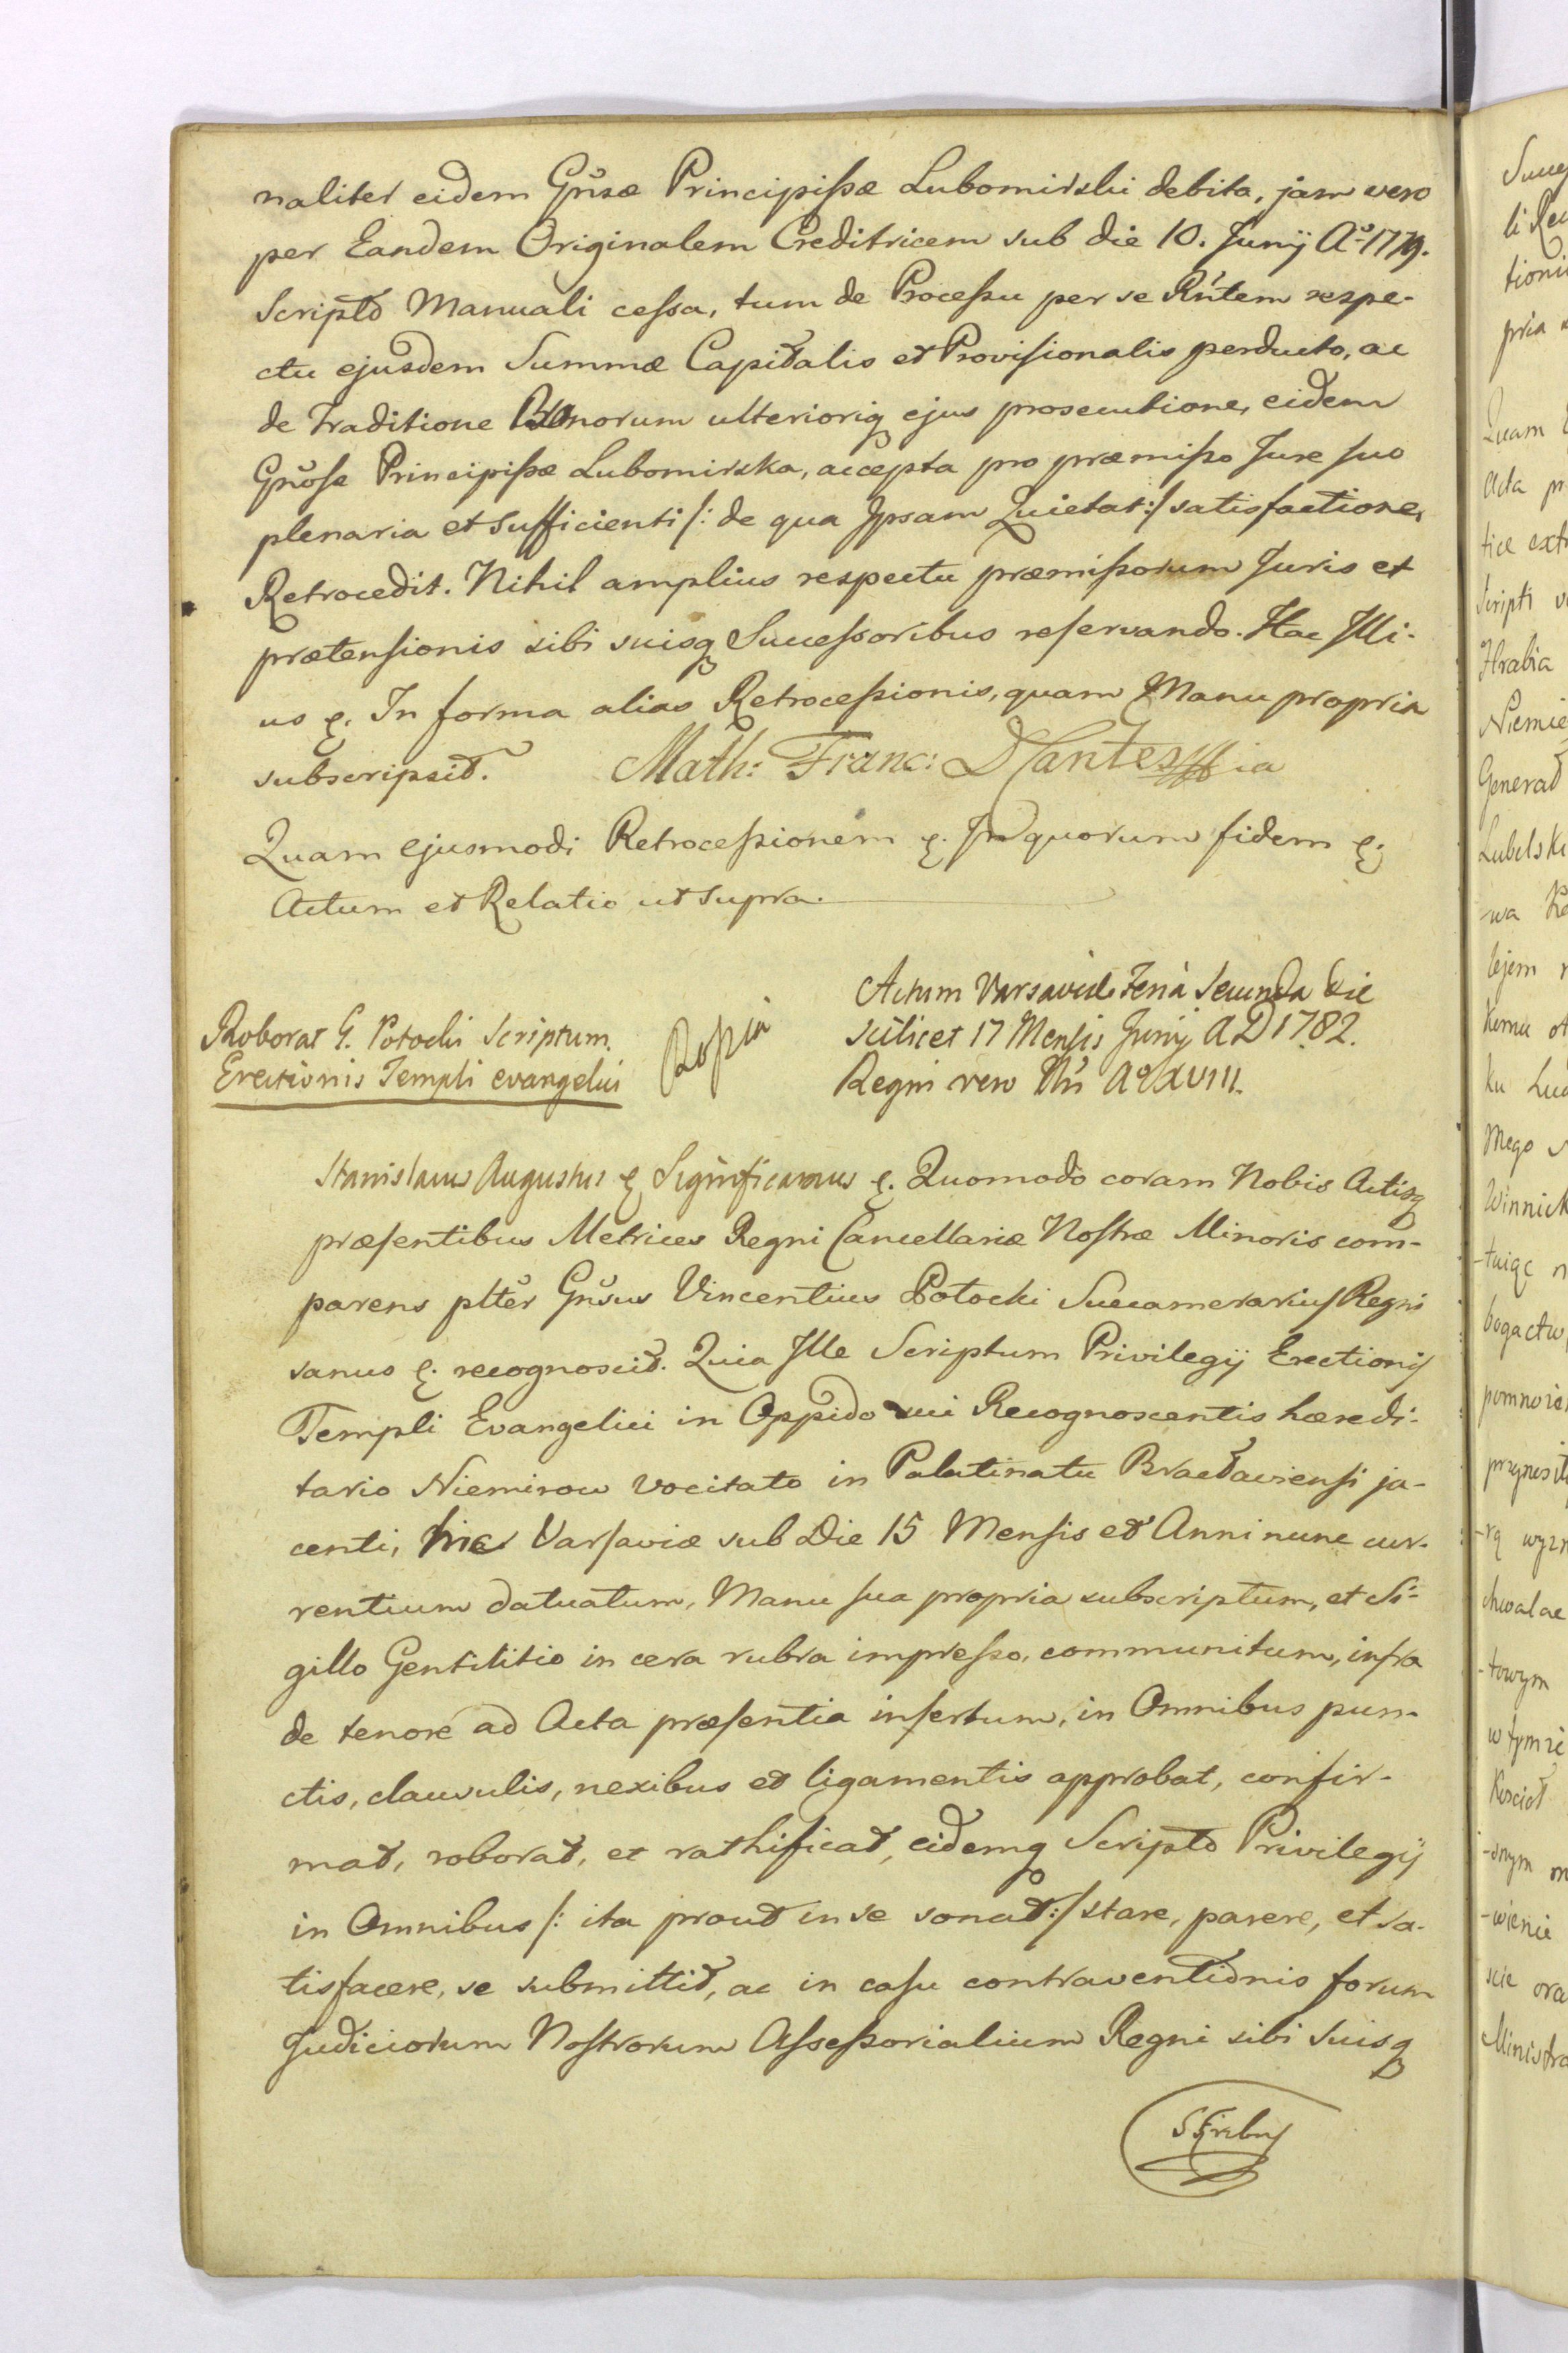 naliter eidem Gnosæ Principissæ Lubomirski debita, jam vero
per Eandem Originalem Creditricem sub die 10. Junij Aº 1779.
Scripto Manuali cessa, tum de Processu per se Rntem respe-
ctu ejusdem Summæ Capitalis et Provisionalis perducto, ac
de Traditione Bonorum ulteriorisq ejus prosecutione, eidem
Gnose Principissæ Lubomirska, accepta pro præmisso Jure suo
plenaria et sufficienti /: de qua Ipsam Quietat :/ satisfactione,
Retrocedit. Nihil amplius respectu præmissorum Juris et
prætensionis sibi suisq Successoribus reservando. Hac Illi-
us &. In forma alias Retrocessionis, quam Manu propria
subscripsit. Math: Franc:
Quam ejusmodi Retrocessionem &. In quorum fidem &.
Actum et Relatio ut supra.
Roborat G. Potocki Scriptum
Erectionis Templi evangelici
Actum Varsaviæ Feria Secunda die
scilicet 17 Mensis Junij AD 1782.
Regni vero Nri Aº XVIII.
Stanislaus Augustus & Significamus &. Quomodo coram Nobis Actisq
præsentibus Metrices Regni Cancellariæ Nostræ Minoris com-
parens plter Gnosus Vincentius Potocki Succamerarius Regni
sanus &. recognoscit. Quia Ille Scriptum Privilegij Erectionis
Templi Evangelici in Oppido sui Recognoscentis hæredi-
tario Niemirow vocitato in Palatinatu Bractaviensi ja-
centi, hic Varsaviæ sub Die 15 Mensis et Anni nunc cur-
rentium datuatum, Manu sua propria subscriptum, et Si-
gillo Gentilitio in cera rubra impresso, communitum, infra
de tenore ad Acta præsentia insertum, in Omnibus pun-
ctis, clausulis, nexibus et ligamentis approbat, confir-
mat, roborat, et rathificat, eidemq Scripto Privilegij
in Omnibus /: ita prout in se sonat :/ stare, parere, et sa-
tisfacere, se submittit, ac in casu contraventionis forum
Judiciorum Nostrorum Assessorialium Regni sibi suisq